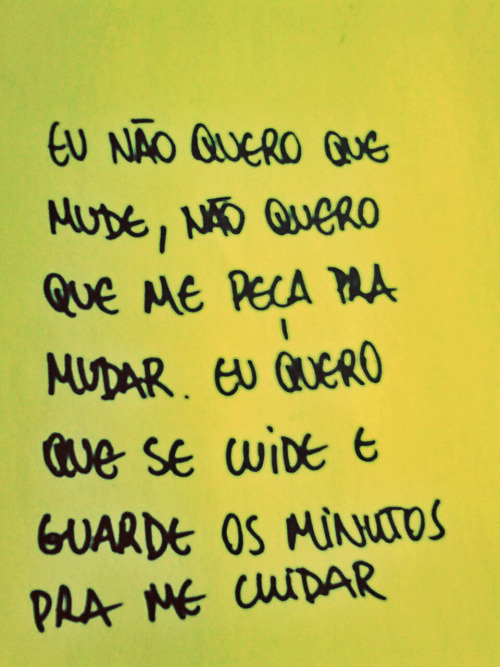 EU NÃO QUERO QUE
MUDE, NÃO QUERO
QUE ME PEÇA PRA
MUDAR. EU QUERO
QUE SE CUIDE E
GUARDE OS MINUTOS
PRA ME CUIDAR